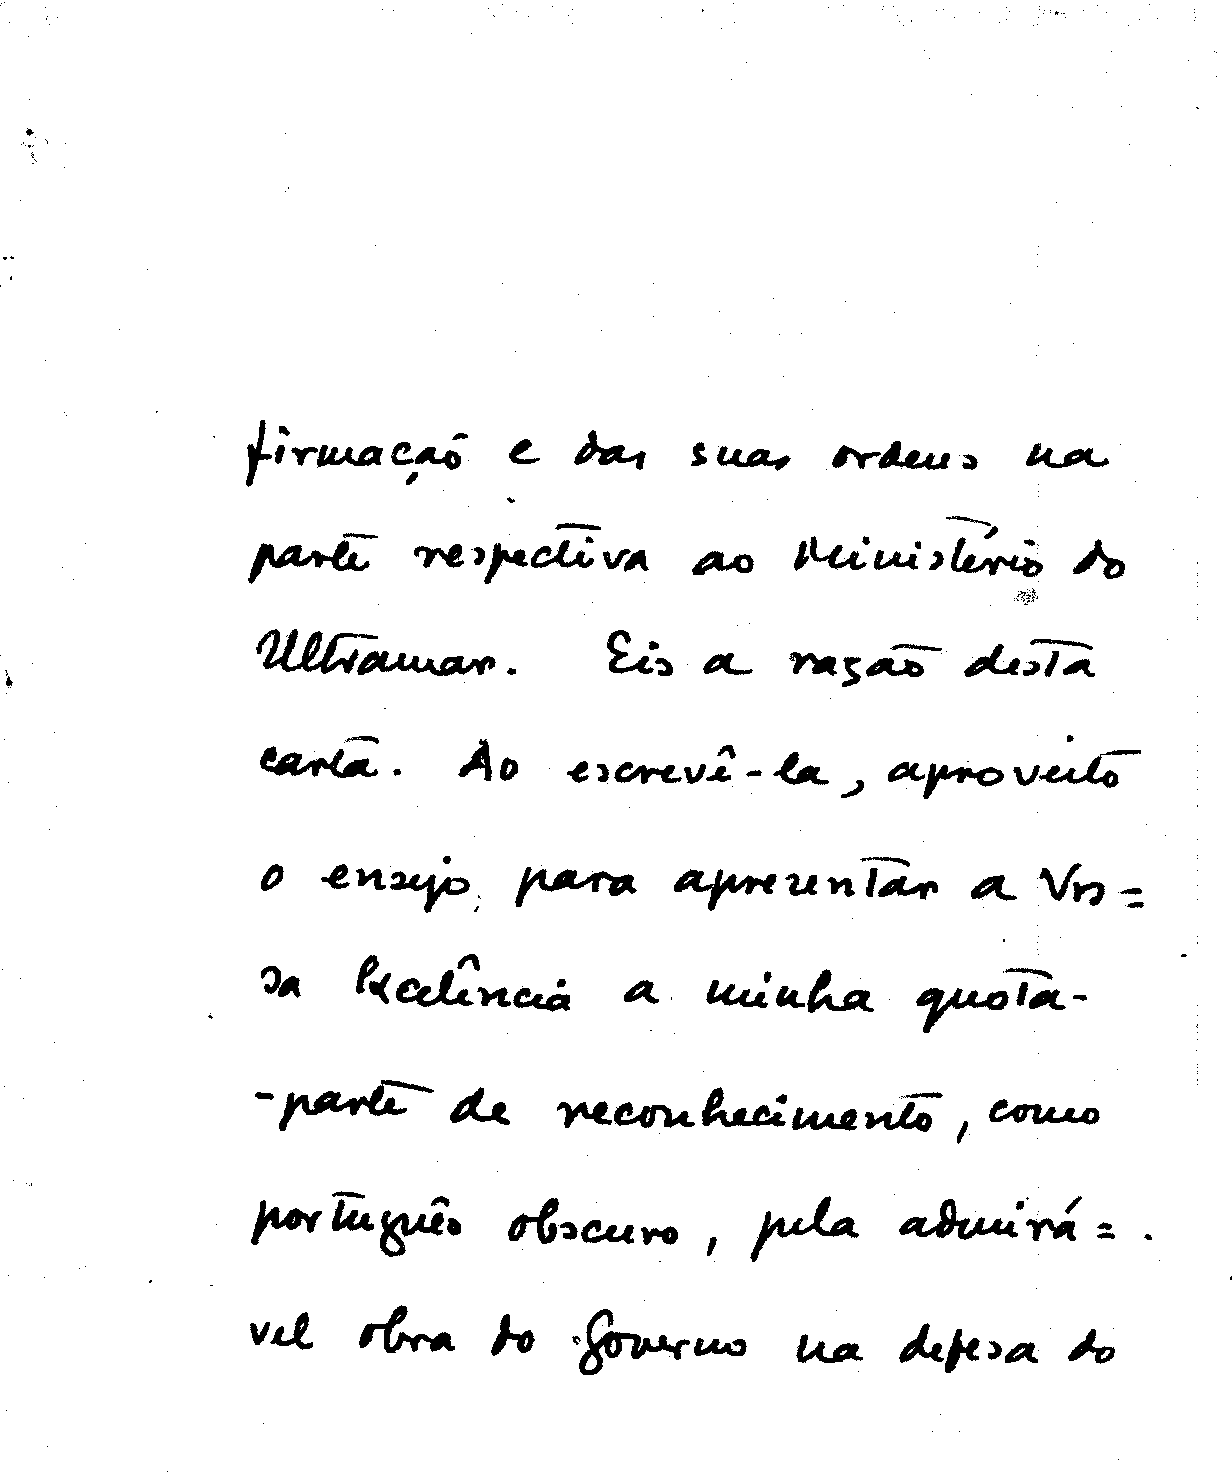 firmação e das suas ordens na
parte respectiva ao Ministério do
Ultramar. Eis a razão desta
carta. Ao escrevê-la, aproveito
o ensejo para apresentar a Vos=
sa Excelência a minha quota-
-parte de reconhecimento, como
português obscuro, pela admirá=
vel obra do Governo na defesa do